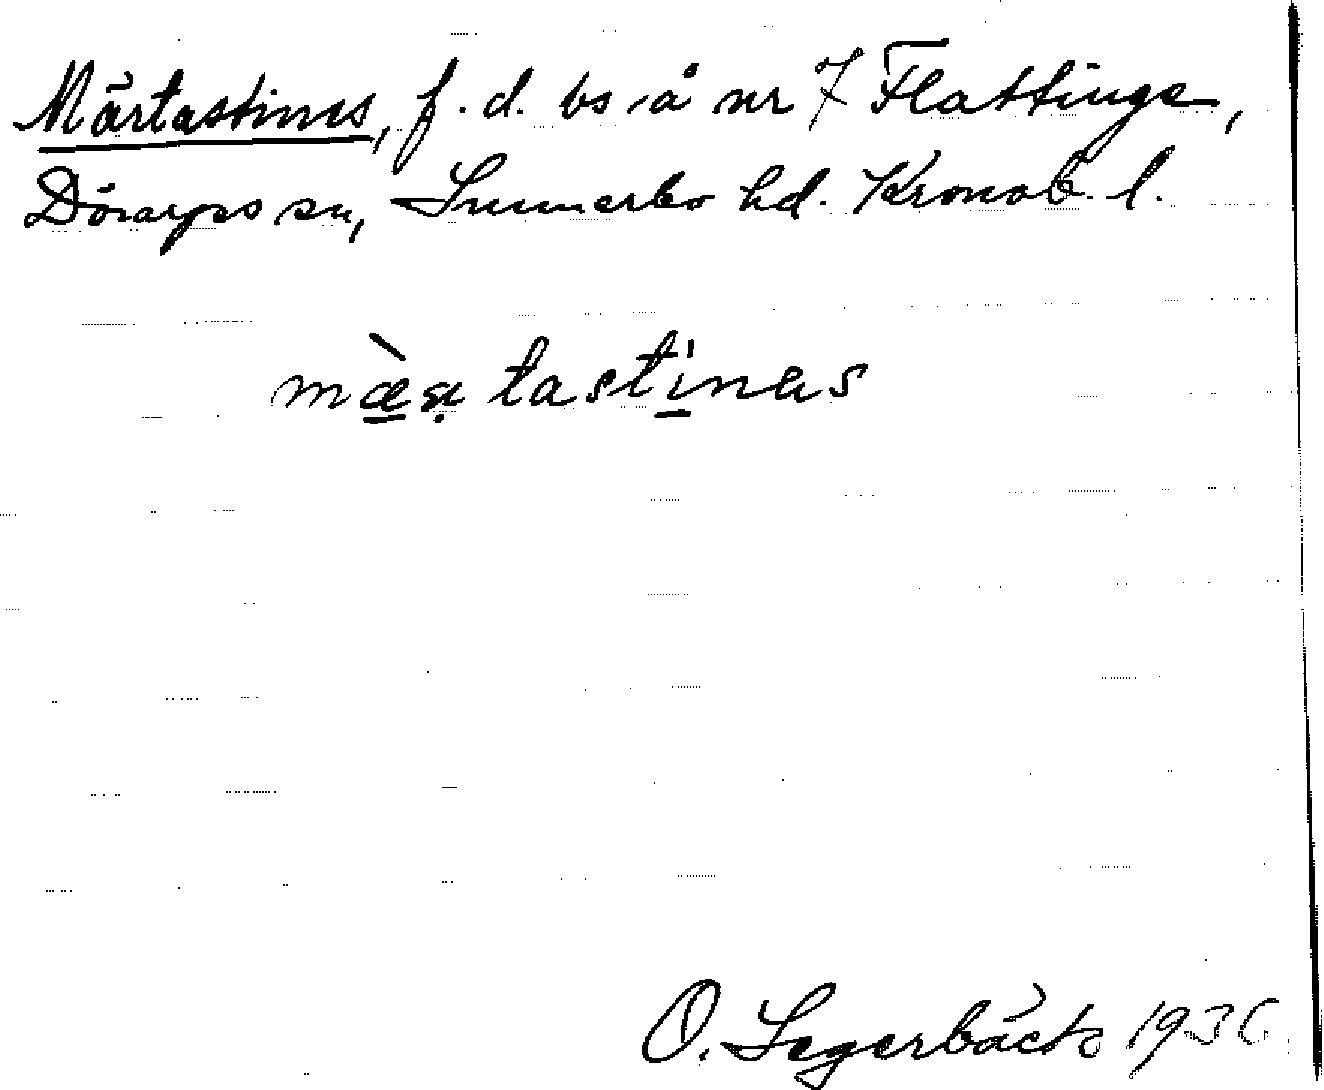 Märtastinas, f.d. bs å nr 7 Flattinge,
Dörarps sn, Sunnerbo hd. Kronob. l.
mæ̀ʀtastinas
O. Segerbäck 1936